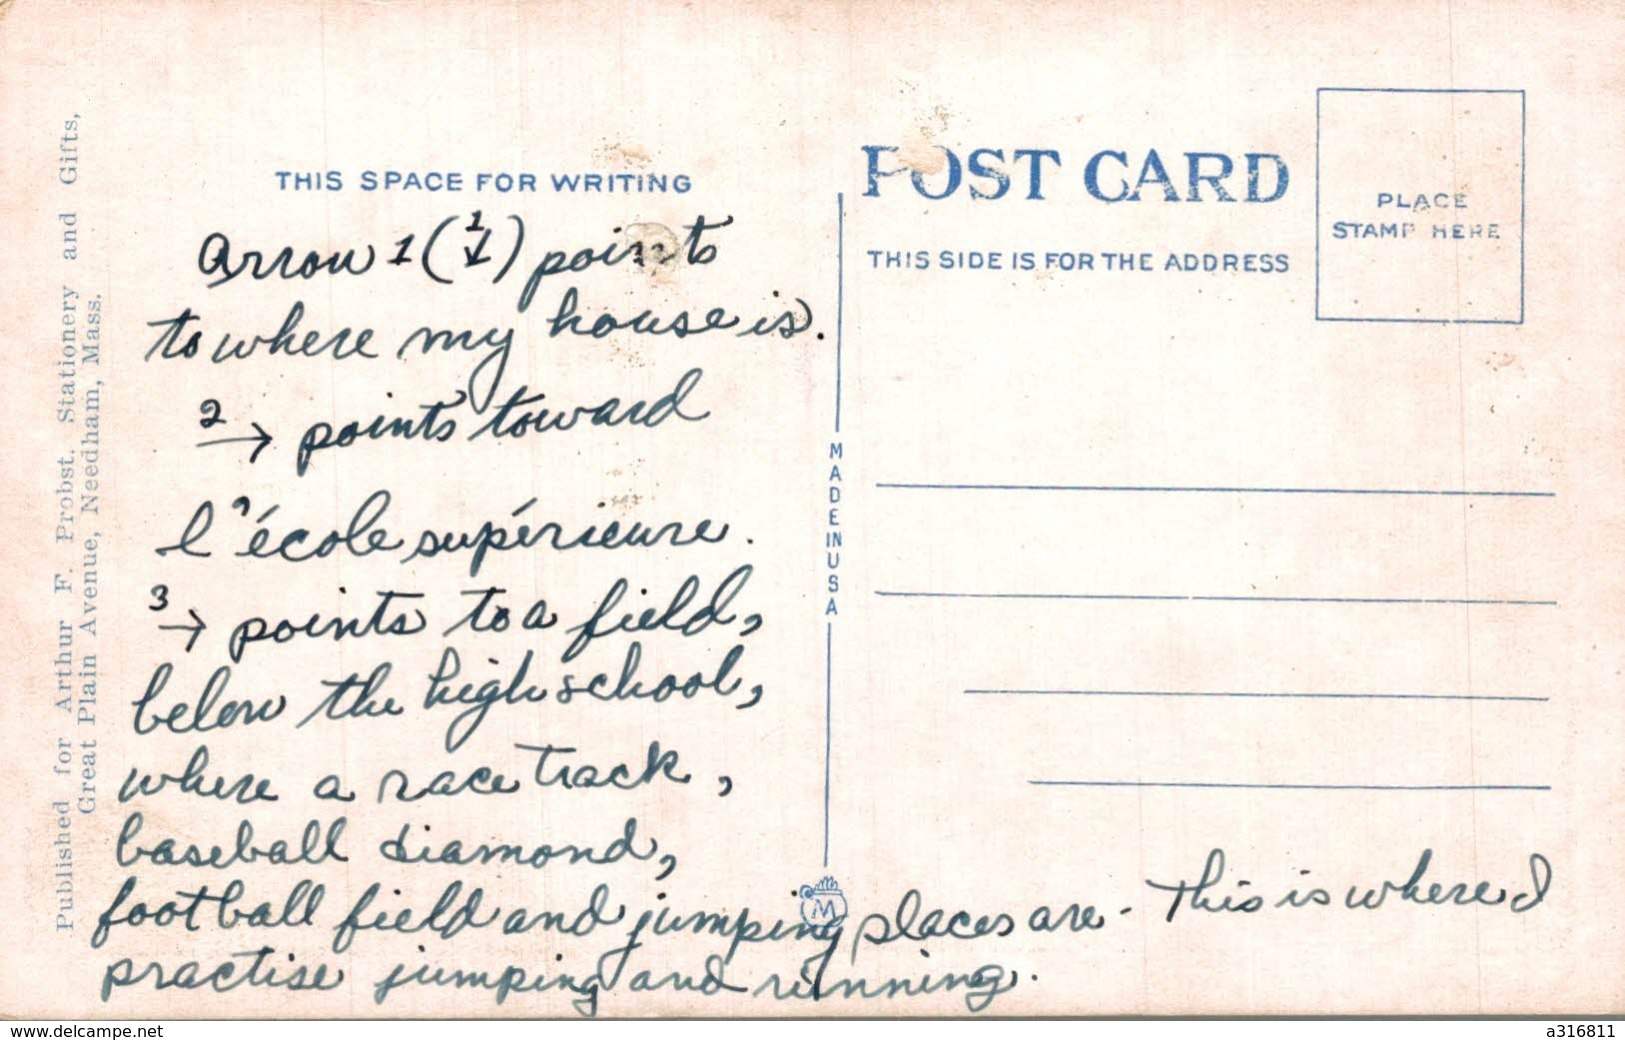 Published for Arthur F. Probst. Stationery and Gifts,
Great Plain Avenue, Needham, Mass.
THIS SPACE FOR WRITING
Arrow 1 (1↓) points
to where my house is.
2→ points toward
l'école supérieure.
3→ points to a field,
below the high school,
where a race track,
baseball diamond,
football field and jumping places are. This is where I
practise jumping and running.
MADE IN USA
M
POST CARD
THIS SIDE IS FOR THE ADDRESS
PLACE
STAMP HERE
www.delcampe.net
a316811